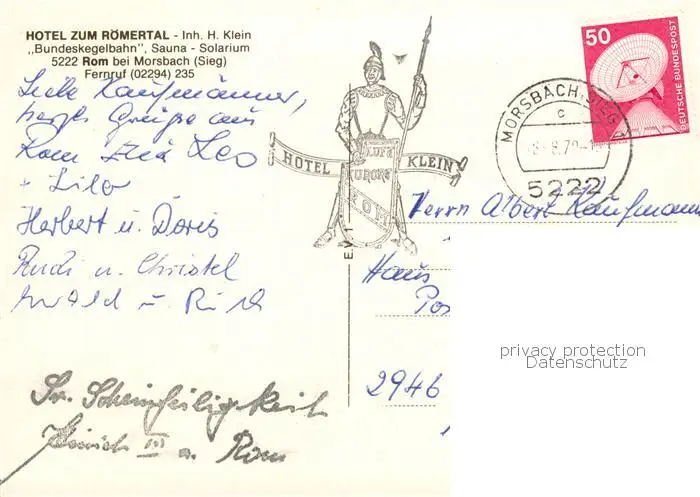 HOTEL ZUM RÖMERTAL - Inh. H. Klein
„Bundeskegelbahn", Sauna - Solarium
5222 Rom bei Morsbach (Sieg)
Fernruf (02294) 235
Liebe Kaufmänner,
herzl. Grüße aus
Rom Leo
+ Lilo
Herbert u. Doris
Rudi u. Christel
Ewald u
Sr. Scheinheiligkeit
Heinrich III a. Rom
HOTEL KLEIN
LUFT
KURORT
ROM
50
DEUTSCHE BUNDESPOST
MORSBACH, SIEG
c
5222
Herrn Albert Kaufmann
Haus
Pos
2946
privacy protection
Datenschutz